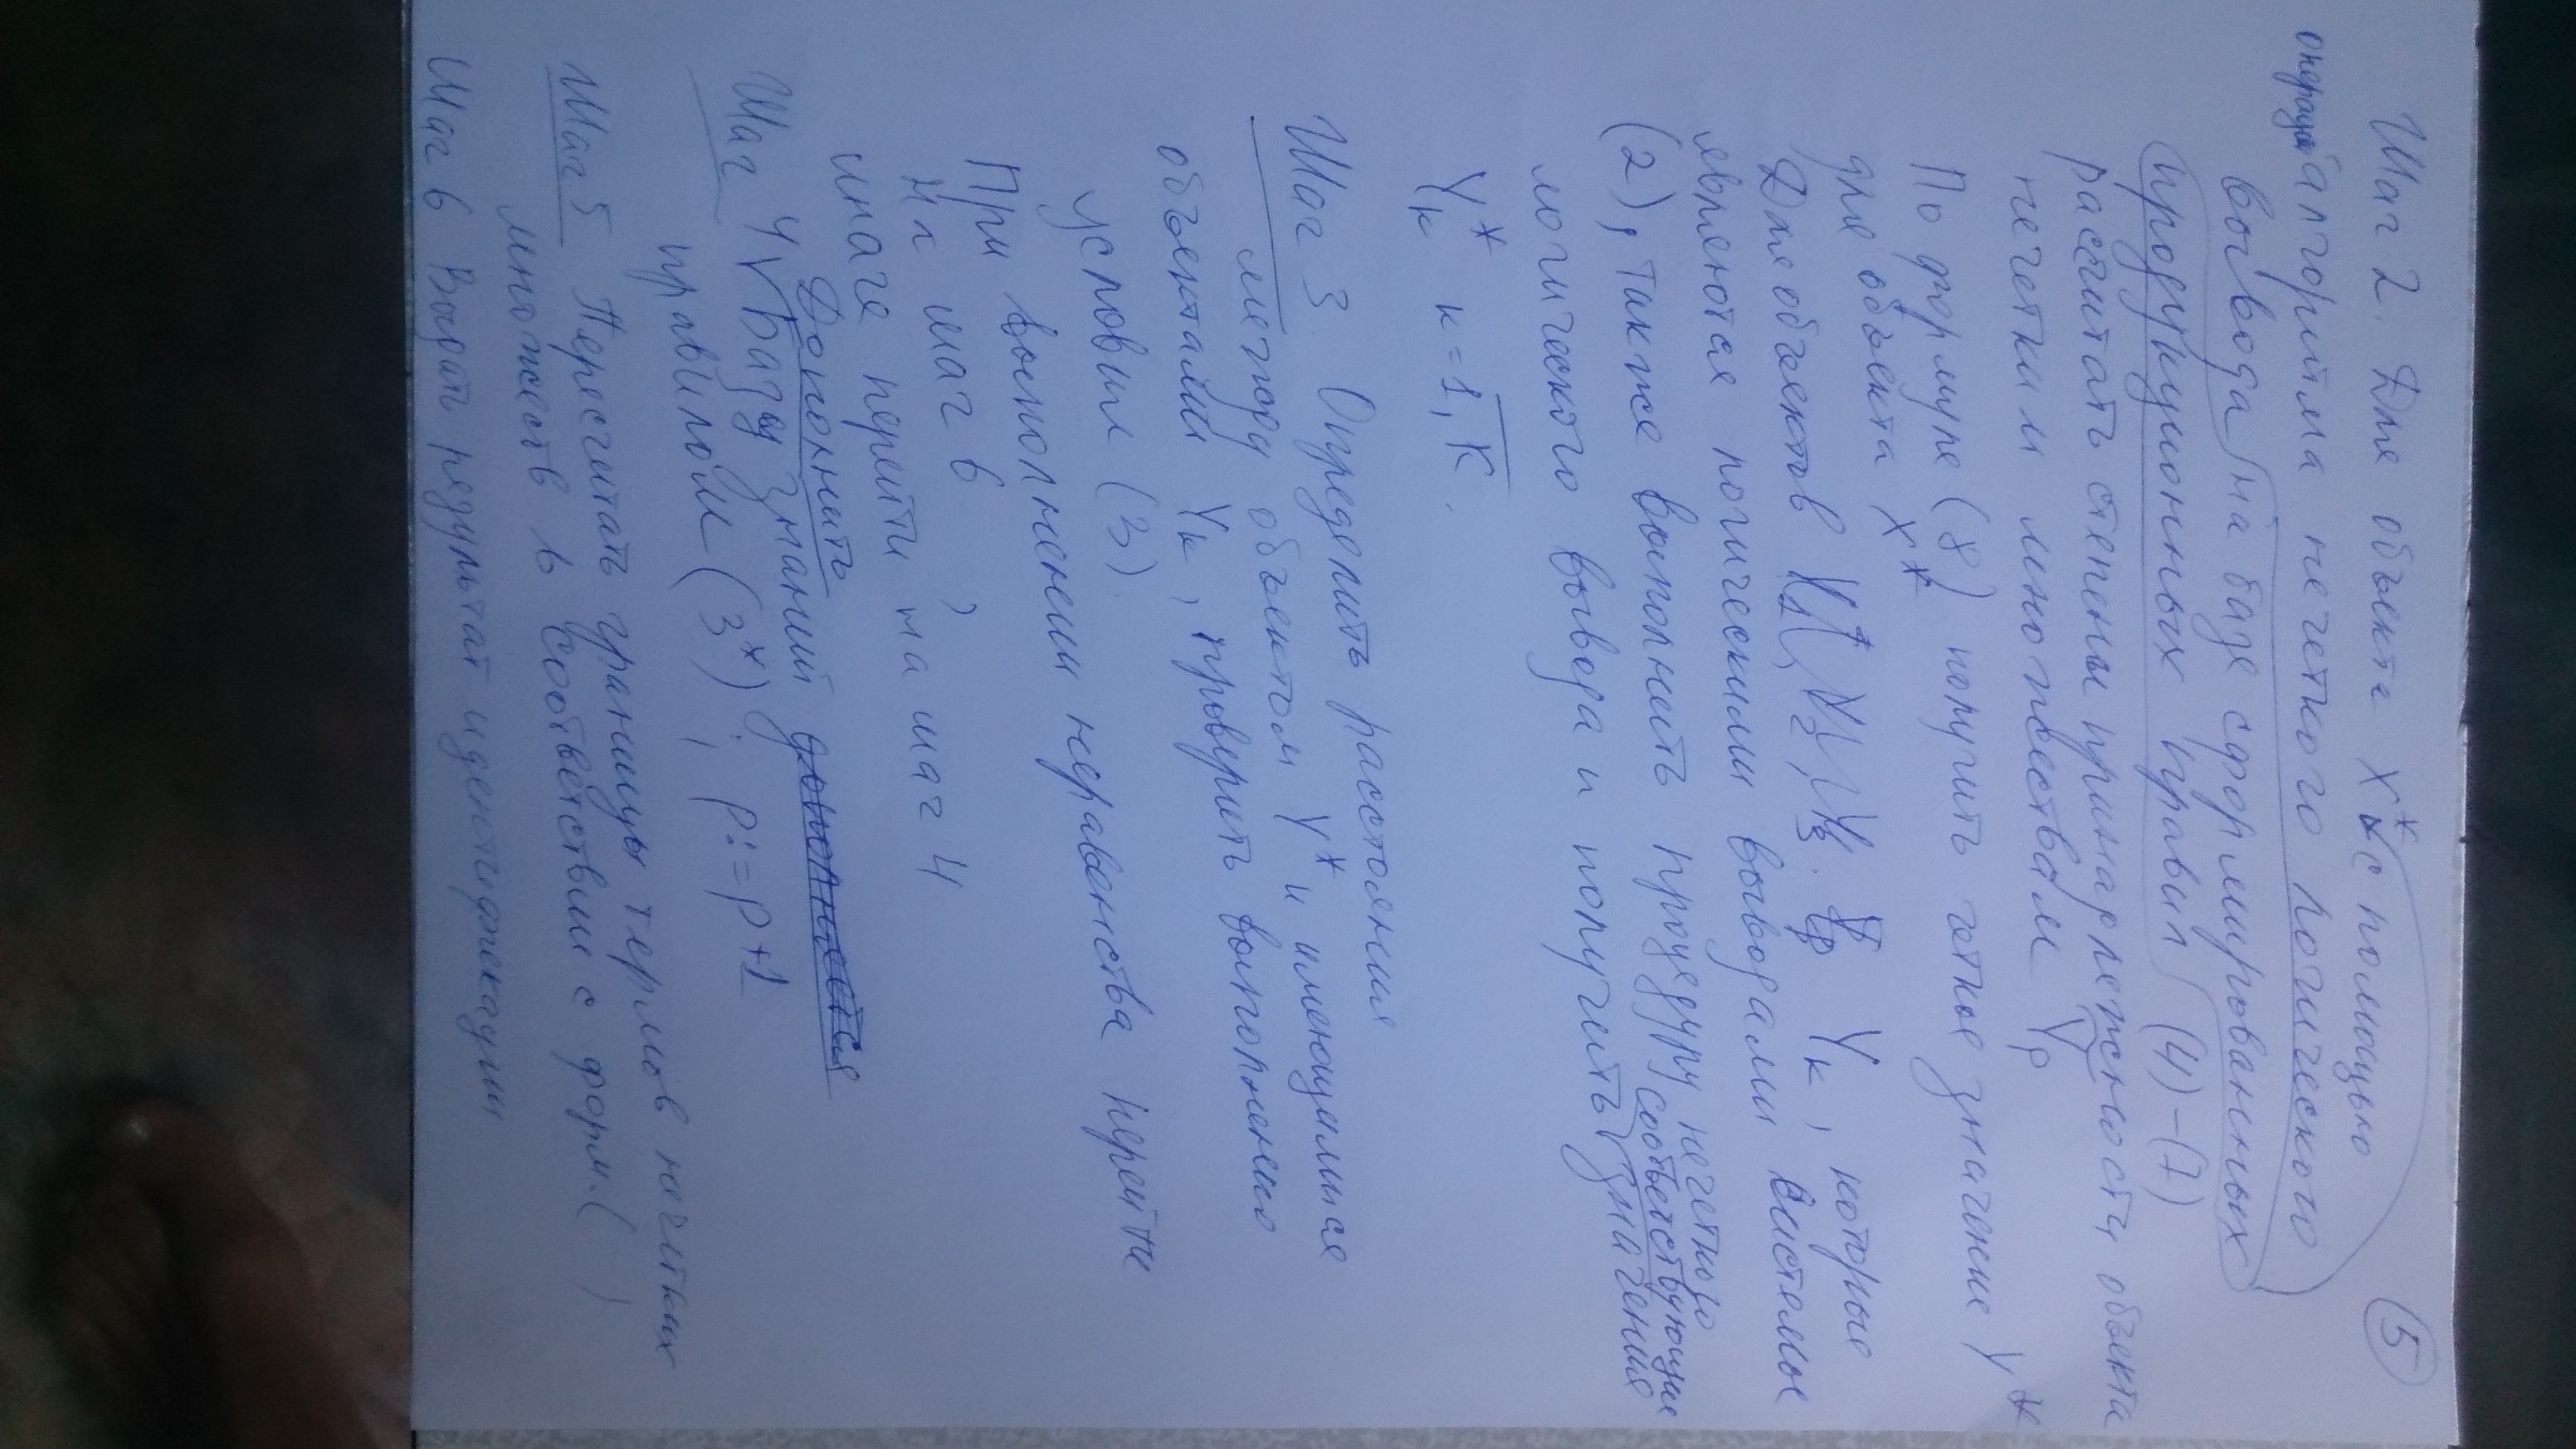 5
Шаг 2. Для объекта X* с помощью
операций алгоритма нечеткого логического
вывода на базе сформированных
продукционных правил (4)-(7)
рассчитать степени принадлежности объекта
нечетким множествам Yp
По формуле (8) получить четкое значение Y*
для объекта X*
Для объектов Y1, Y2, Y3. Yk, которые
являются логическими выводами системы
(2), также выполнить процедуру нечеткого
логического вывода и получить соответствующие значения
Yk* k=1,K.
Шаг 3. Определить расстояния
между объектом Y* и имеющимися
объектами Yk, проверить выполнение
условия (3).
При выполнении неравенства перейти
на шаг 6,
иначе перейти на шаг 4
Шаг 4 Дополнить базу знаний дополняется
правилом (3*); p:=p+1
Шаг 5 Пересчитать границы термов нечетких
множеств в соответствии с форм. ( )
Шаг 6 Выдать результат идентификации